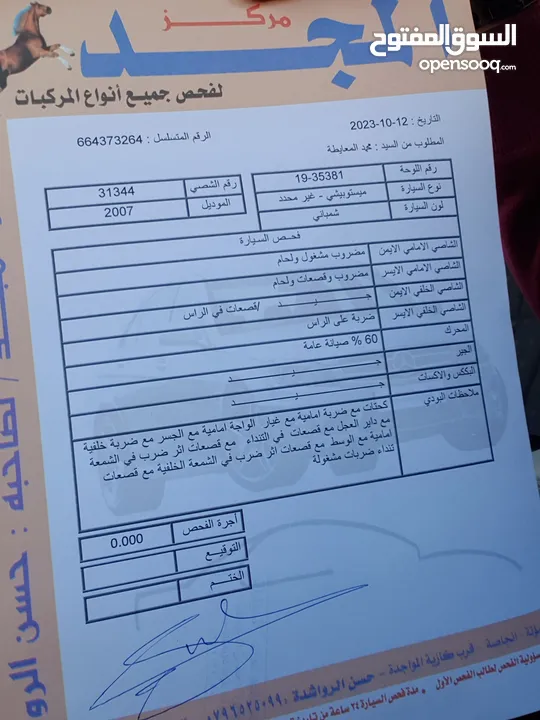 السوق المفتوح
opensooq.com
مركز
المجد
لفحص جميع أنواع المركبات
التاريخ : 12-10-2023
الرقم المتسلسل : 664373264
المطلوب من السيد : محمد المعايطة
رقم اللوحة 19-35381
رقم الشصي 31344
نوع السيارة ميستوبيشي - غير محدد
الموديل 2007
لون السيارة شمباني
فحص السيارة
الشاصي الامامي الايمن مضروب مشغول ولحام
الشاصي الامامي الايسر مضروب وقصعات ولحام
الشاصي الخلفي الايمن جيد /قصعات في الراس
الشاصي الخلفي الايسر ضربة على الراس
المحرك 60 % صيانة عامة
الجير جيد
البكس والاكسات جيد
ملاحظات البودي كحتات مع ضربة امامية مع غيار الواجة امامية مع الجسر مع ضربة خلفية
مع داير العجل مع قصعات في التنداء مع قصعات اثر ضرب في الشمعة
امامية مع الوسط مع قصعات اثر ضرب في الشمعة الخلفية مع قصعات
تنداء ضربات مشغولة
اجرة الفحص 0.000
التوقيع
الختم
لصاحبه : حسن الرو
الخامسة - قرب كازية المواجدة - حسن الرواشدة
سؤولية الفحص لطالب الفحص الأول * مدة فحص السيارة ٢٤ ساعة من